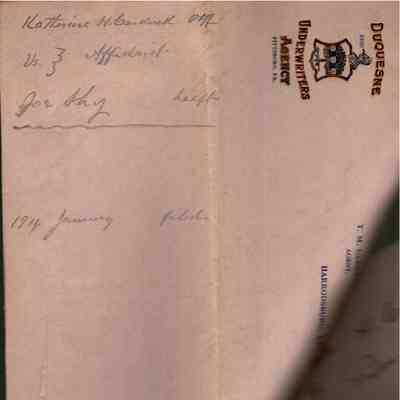 Katherine H. Cardwell Plff
Vs. } Affidavit
Joe Shy Deeft
1914 January
DUQUESNE
UNDERWRITERS
AGENCY
PITTSBURG, PA.
T. M.
AGENT
HARRODSBURG